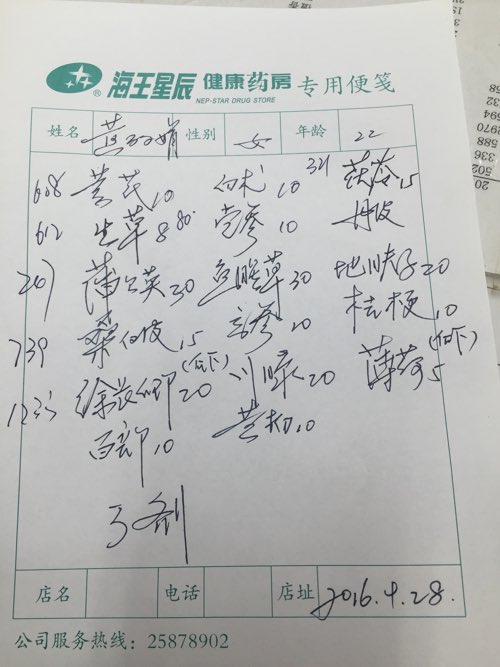 海王星辰 健康药房 专用便笺
NEP-STAR DRUG STORE
姓名 性别 女 年龄 22
608 黄芪10 白术10 321 茯苓15
612 生草8 80 党参10 丹皮
267 蒲公英30 鱼腥草30 地肤子20
739 桑白皮15 玄参10 桔梗10
1233 徐长卿20(后下) 川 20 薄荷5(后下)
百部10 黄芩10
3剂
店名 电话 店址 2016.4.28.
公司服务热线：25878902